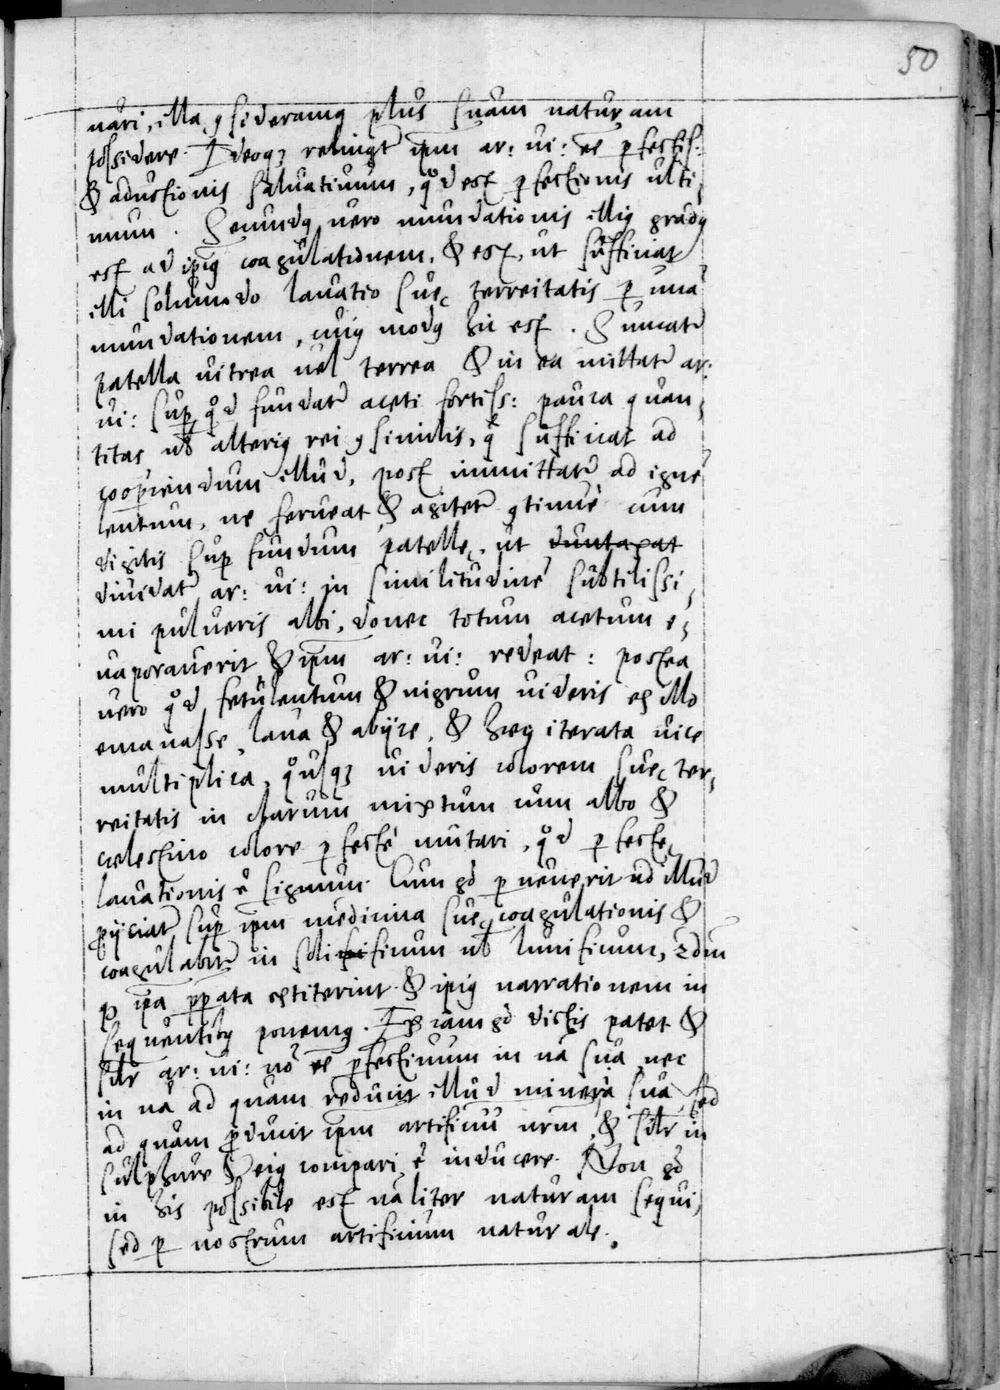 50
nari, illa, ꝯsideramꝰ plus suam naturam
possidere. Ideoqꝫ relinqt̃ ipm̃ ar: ui: eẽ perfectiss:
& adustionis saluatiuum, qd̃ est perfectionis ulti,
mum. Secundꝰ uero mundationis illiꝰ gradꝰ
est ad ipiꝰ coagulationem, & est, ut sufficiat
illi solummodo lauatio suę terreitatis ꝑ unã
mundationem, cuiꝰ modꝰ hic est. Sumatr̃
patella uitrea uel terrea & in ea mittatr̃ ar:
ui: suꝑ qd̃ fundatr̃ aceti fortiss: pauca quan,
titas uł alteriꝰ rei ꝯsimilis, q̃ sufficiat ad
cooꝑiendum illud, post immittatr̃ ad ignẽ
lentum, ne ferueat & agitetr̃ ꝯtinuè cum
digitis suꝑ fundum patellę, ut duntaxat
diuidatr̃ ar: ui: in similitudinẽ subtilissi,
mi pulueris albi, donec totum acetum e,
uaporauerit & ipm̃ ar: ui: redeat: postea
uero qd̃ fetulentum & nigrum uideris ex illo
emanasse, laua & abijce, & hãc iterata uice
multiplica, qͦusqꝫ uideris colorem suę ter,
reitatis in clarum mixtum cum albo &
cęlestino colore ꝑfectè mutari, qd̃ ꝑfectę
lauationis ẽ signum. Cum gͦ ꝑuenerit ad illud
ꝓijciatr̃ suꝑ ipm̃ medicina suę coagulationis &
coagulabitr̃ in solificum uł lunificum, ꝫdm̃
ꝙ ipã ꝑꝑata extiterint & ipiꝰ narrationem in
sequentibꝰ ponemꝰ. Ex iam gͦ dictis patet &
silr̃ ar: ui: nõ eẽ ꝑfectiuum in nã sua, nec
in nã ad quam reducit illud minera sua sed
ad quam ꝓducit ipm̃ artificiũ nrm̃, & silr̃ in
sulphure & eiꝰ compari ẽ inducere. Non gͦ
in his possibile est nãliter naturam sequi,
sed ꝑ nostrum artificium naturale.